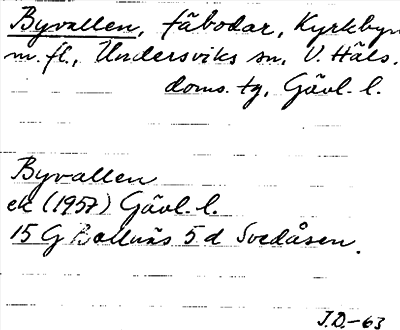 Byvallen, fäbodar, Kyrkbyn
m. fl., Undersviks sn, V. Häls.
doms. tg, Gävl. l.
Byvallen
ek (1957) Gävl. l.
15 G Bollnäs 5 d Svedåsen.
J.D.-63